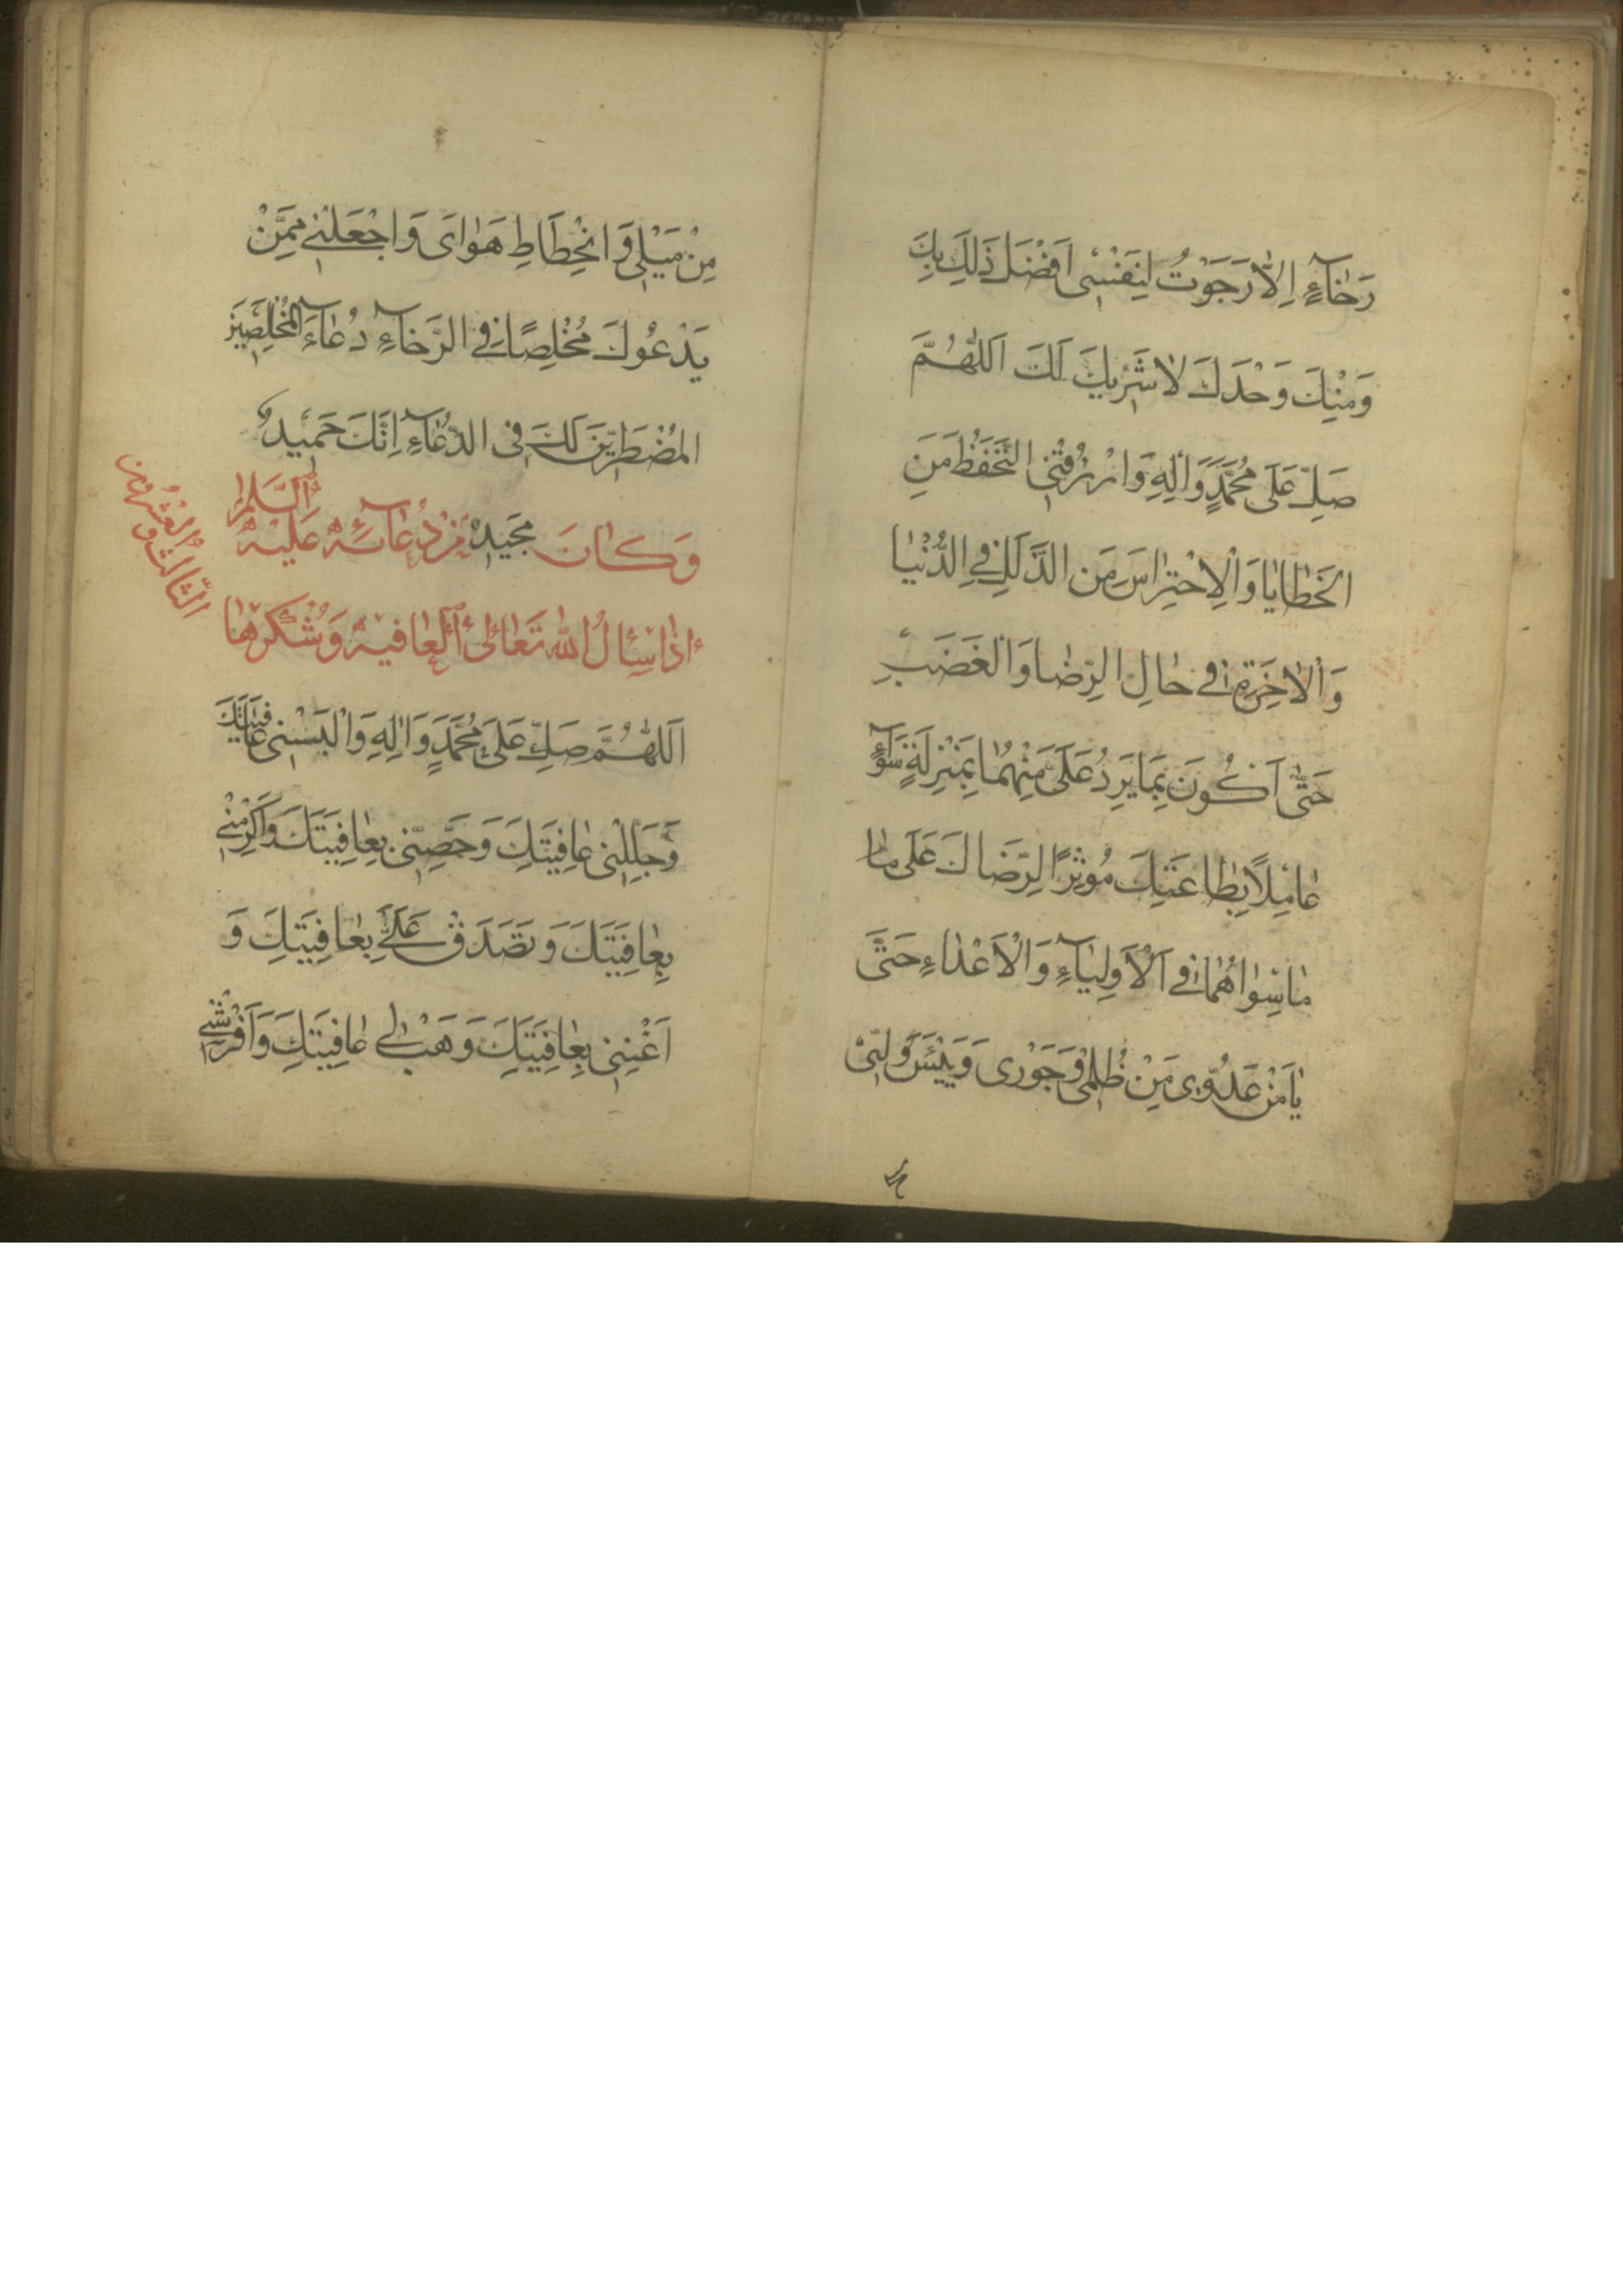 رَخَآءٍ اِلَّا رَجَوْتُ لِنَفْسِى اَفْضَلَ ذَلِكَ بِكَ
وَمِنْكَ وَحْدَكَ لَا شَرِيكَ لَكَ اَللّٰهُمَّ
صَلِّ عَلَى مُحَمَّدٍ وَاٰلِهِ وَارْزُقْنِى التَّحَفُّظَ مِنَ
الخَطَايَا وَالْاِحْتِرَاسَ مِنَ الزَّلَلِ فِى الدُّنْيَا
وَالْاٰخِرَةِ فِى حَالِ الرِّضَا وَالغَضَبِ
حَتَّى اَكُونَ بِمَا يَرِدُ عَلَىَّ مِنْهُمَا بِمَنْزِلَةٍ سَوَآءٍ
عَامِلًا بِطَاعَتِكَ مُوثِرًا لِرِضَاكَ عَلَى مَا
مَا سِوَاهُمَا فِى الْاَوْلِيَآءِ وَالْاَعْدَاءِ حَتَّى
يَاْمَنَ عَدُوِّى مِنْ ظُلْمِى وَجَوْرِى وَيَيْئَسَ وَلِيِّى
مِنْ مَيْلِى وَانْحِطَاطِ هَوَاىَ وَاجْعَلْنِى مِمَّنْ
يَدْعُوكَ مُخْلِصًا فِى الرَّخَآءِ دُعَآءَ المُخْلِصِينَ
المُضْطَرِّينَ لَكَ فِى الدُّعَآءِ اِنَّكَ حَمِيدٌ
وَكَانَ مَجِيدٌ مِنْ دُعَآئِهِ عَلَيْهِ السَّلَامُ
اِذَا سَاَلَ اللّٰهَ تَعَالَى الْعَافِيَةَ وَشُكْرَهَا
الثَّالِثُ وَ
العُشْرُونَ
اَللّٰهُمَّ صَلِّ عَلَى مُحَمَّدٍ وَاٰلِهِ وَاَلْبِسْنِى عَافِيَتَكَ
وَجَلِّلْنِى عَافِيَتَكَ وَحَصِّنِّى بِعَافِيَتِكَ وَاَكْرِمْنِى
بِعَافِيَتِكَ وَتَصَدَّقْ عَلَىَّ بِعَافِيَتِكَ وَ
اَغْنِنِى بِعَافِيَتِكَ وَهَبْ لِى عَافِيَتَكَ وَاَفْرِشْنِى